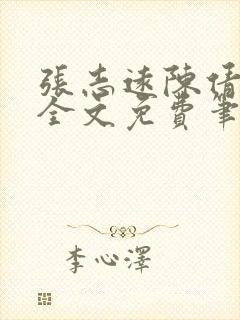 張志遠陳倩
全文免費筆
李心澤